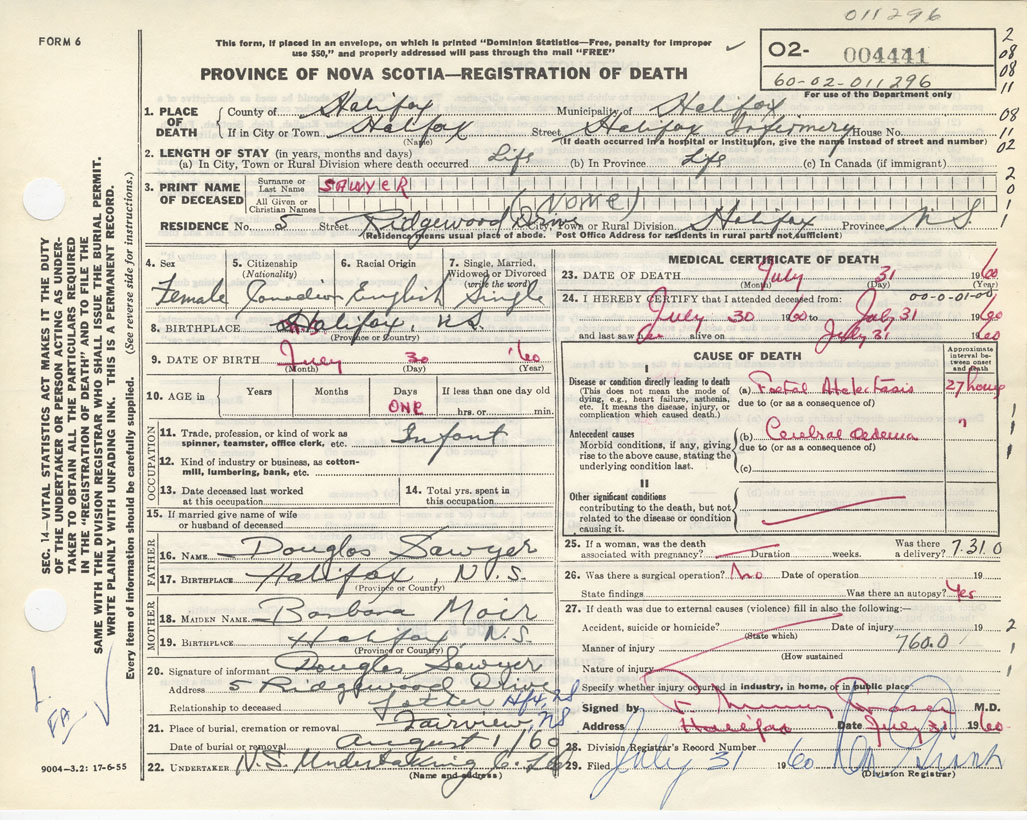 011296
FORM 6
This form, if placed in an envelope, on which is printed "Dominion Statistics—Free, penalty for improper
use $50," and properly addressed will pass through the mail "FREE"
PROVINCE OF NOVA SCOTIA—REGISTRATION OF DEATH
02- 004441
60-02-011296
For use of the Department only
2
08
08
11
08
11
02
2
0
1
1
1. PLACE OF DEATH
County of Halifax Municipality of Halifax
If in City or Town Halifax Street Halifax Infirmary House No.
(Name) (If death occurred in a hospital or institution, give the name instead of street and number)
2. LENGTH OF STAY (in years, months and days)
(a) In City, Town or Rural Division where death occurred Life (b) In Province Life (c) In Canada (if immigrant)
3. PRINT NAME OF DECEASED
Surname or Last Name SAWYER
All Given or Christian Names (None)
RESIDENCE No. 5 Street Ridgewood Drive City, Town or Rural Division Halifax Province N.S.
(Residence means usual place of abode. Post Office Address for residents in rural parts not sufficient)
4. Sex 5. Citizenship (Nationality) 6. Racial Origin 7. Single, Married, Widowed or Divorced (write the word)
Female Canadian English Single
8. BIRTHPLACE Halifax, N.S.
(Province or Country)
9. DATE OF BIRTH July 30 '60
(Month) (Day) (Year)
10. AGE in Years Months Days If less than one day old
ONE hrs. or min.
OCCUPATION
11. Trade, profession, or kind of work as spinner, teamster, office clerk, etc. Infant
12. Kind of industry or business, as cotton-mill, lumbering, bank, etc.
13. Date deceased last worked at this occupation
14. Total yrs. spent in this occupation
15. If married give name of wife or husband of deceased
FATHER
16. NAME Douglas Sawyer
17. BIRTHPLACE Halifax, N.S.
(Province or Country)
MOTHER
18. MAIDEN NAME Barbara Moir
19. BIRTHPLACE Halifax, N.S.
(Province or Country)
20. Signature of informant Douglas Sawyer
Address 5 Ridgewood Drive
Relationship to deceased father
21. Place of burial, cremation or removal Fairview, NS
Date of burial or removal August 1/60
22. UNDERTAKER N.S. Undertaking Co. Ltd
(Name and address)
MEDICAL CERTIFICATE OF DEATH
23. DATE OF DEATH July 31 1960
(Month) (Day) (Year)
00-0-01-00
24. I HEREBY CERTIFY that I attended deceased from: July 30 1960 to July 31 1960
and last saw her alive on July 31 1960
CAUSE OF DEATH
Approximate interval between onset and death
I
Disease or condition directly leading to death
(This does not mean the mode of dying, e.g., heart failure, asthenia, etc. It means the disease, injury, or complication which caused death.)
(a) Foetal Atelectasis 27 hours
due to (or as a consequence of)
Antecedent causes
Morbid conditions, if any, giving rise to the above cause, stating the underlying condition last.
(b) Cerebral oedema ?
due to (or as a consequence of)
(c)
II
Other significant conditions
contributing to the death, but not related to the disease or condition causing it.
1
1
1
25. If a woman, was the death associated with pregnancy? Duration weeks. Was there a delivery? 7.31.0
26. Was there a surgical operation? No Date of operation 19
State findings Was there an autopsy? Yes
27. If death was due to external causes (violence) fill in also the following:—
Accident, suicide or homicide? Date of injury 19 2
(State which)
Manner of injury 760.0 1
(How sustained)
Nature of injury 1
Specify whether injury occurred in industry, in home, or in public place
Signed by F Murray Fraser M.D.
Address Halifax Date July 31 1960
28. Division Registrar's Record Number
29. Filed July 31 1960
(Division Registrar)
SEC. 14—VITAL STATISTICS ACT MAKES IT THE DUTY
OF THE UNDERTAKER OR PERSON ACTING AS UNDER-
TAKER TO OBTAIN ALL THE PARTICULARS REQUIRED
IN THE "REGISTRATION OF DEATH" AND FILE THE
SAME WITH THE DIVISION REGISTRAR WHO SHALL ISSUE THE BURIAL PERMIT.
WRITE PLAINLY WITH UNFADING INK. THIS IS A PERMANENT RECORD.
Every item of information should be carefully supplied. (See reverse side for instructions.)
9004-3.2: 17-6-55